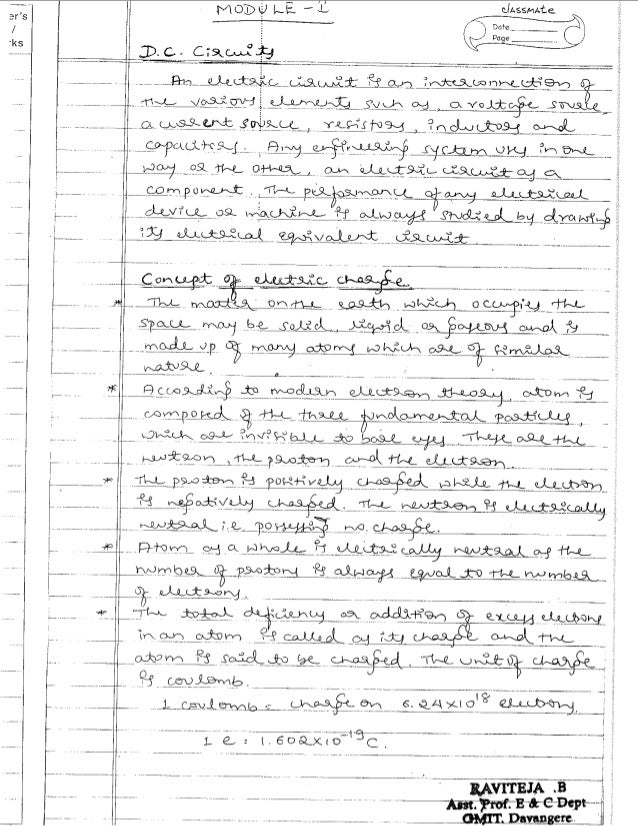 er's
/
ks
MODULE - I
classmate
Date
Page
D.C. Circuits
An electric circuit is an interconnection of
the various elements such as, a voltage source,
a current source, resistors, inductors and
capacitors. Any engineering system uses in one
way or the other, an electric circuit as a
component. The performance of any electrical
device or machine is always studied by drawing
its electrical equivalent circuit
Concept of electric charge
* The matter on the earth which occupies the
space may be solid, liquid or gaseous and is
made up of many atoms which are of similar
nature.
* According to modern electron theory, atom is
composed of the three fundamental particles,
which are invisible to bare eyes. These are the
neutron, the proton and the electron.
* The proton is positively charged while the electron
is negatively charged. The neutron is electrically
neutral i.e possessing no charge.
* Atom as a whole is electrically neutral as the
number of protons is always equal to the number
of electrons.
* The total deficiency or addition of excess electrons
in an atom is called as its charge and the
atom is said to be charged. The unit of charge
is coulomb.
1 coulomb = charge on 6.24×10¹⁸ electrons.
1 e = 1.602×10⁻¹⁹ C.
RAVITEJA .B
Asst. Prof. E & C Dept
GMIT. Davangere